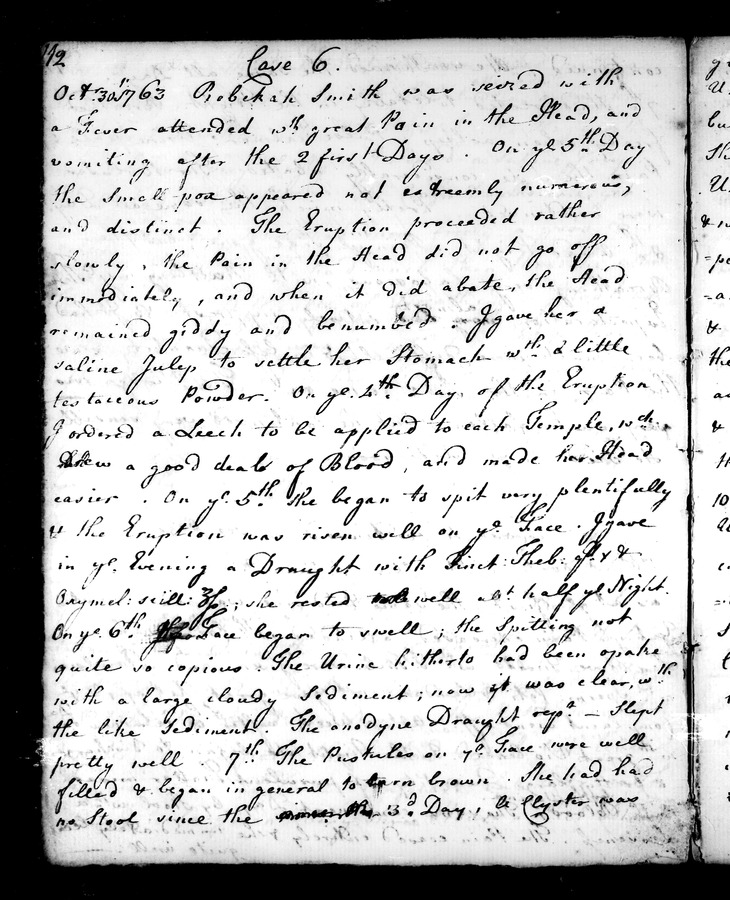 142
Case 6.
Oct. 30th 1763 Robekah Smith was seized with
a Fever attended wth great Pain in the Head, and
vomiting after the 2 first Days. On ye 5th Day
the Small pox appeared not extreemly numerous,
and distinct. The Eruption proceeded rather
slowly, the Pain in the Head did not go off
immediately, and when it did abate, the Head
remained giddy and benumbed. I gave her a
saline Julep to settle her Stomach wth a little
testaceous Powder. On ye 4th Day of the Eruption
I ordered a Leech to be applied to each Temple, wch
drew a good deale of Blood, and made her Head
easier. On ye 5th she began to spit very plentifully
& the Eruption was risen well on ye Face. I gave
in ye Evening a Draught with Tinct: Theb: gtt x &
Oxymel: scill: ʒſs; she rested well abt half ye Night.
On ye 6th Face began to swell; the Spitting not
quite so copious. The Urine hitherto had been opake
with a large cloudy Sediment; now it was clear, wth
the like Sediment. The anodyne Draught repd — Slept
pretty well. 7th The Pustules on ye Face were well
filled & began in general to turn brown. She had had
no Stool since the 3d Day, a Clyster was